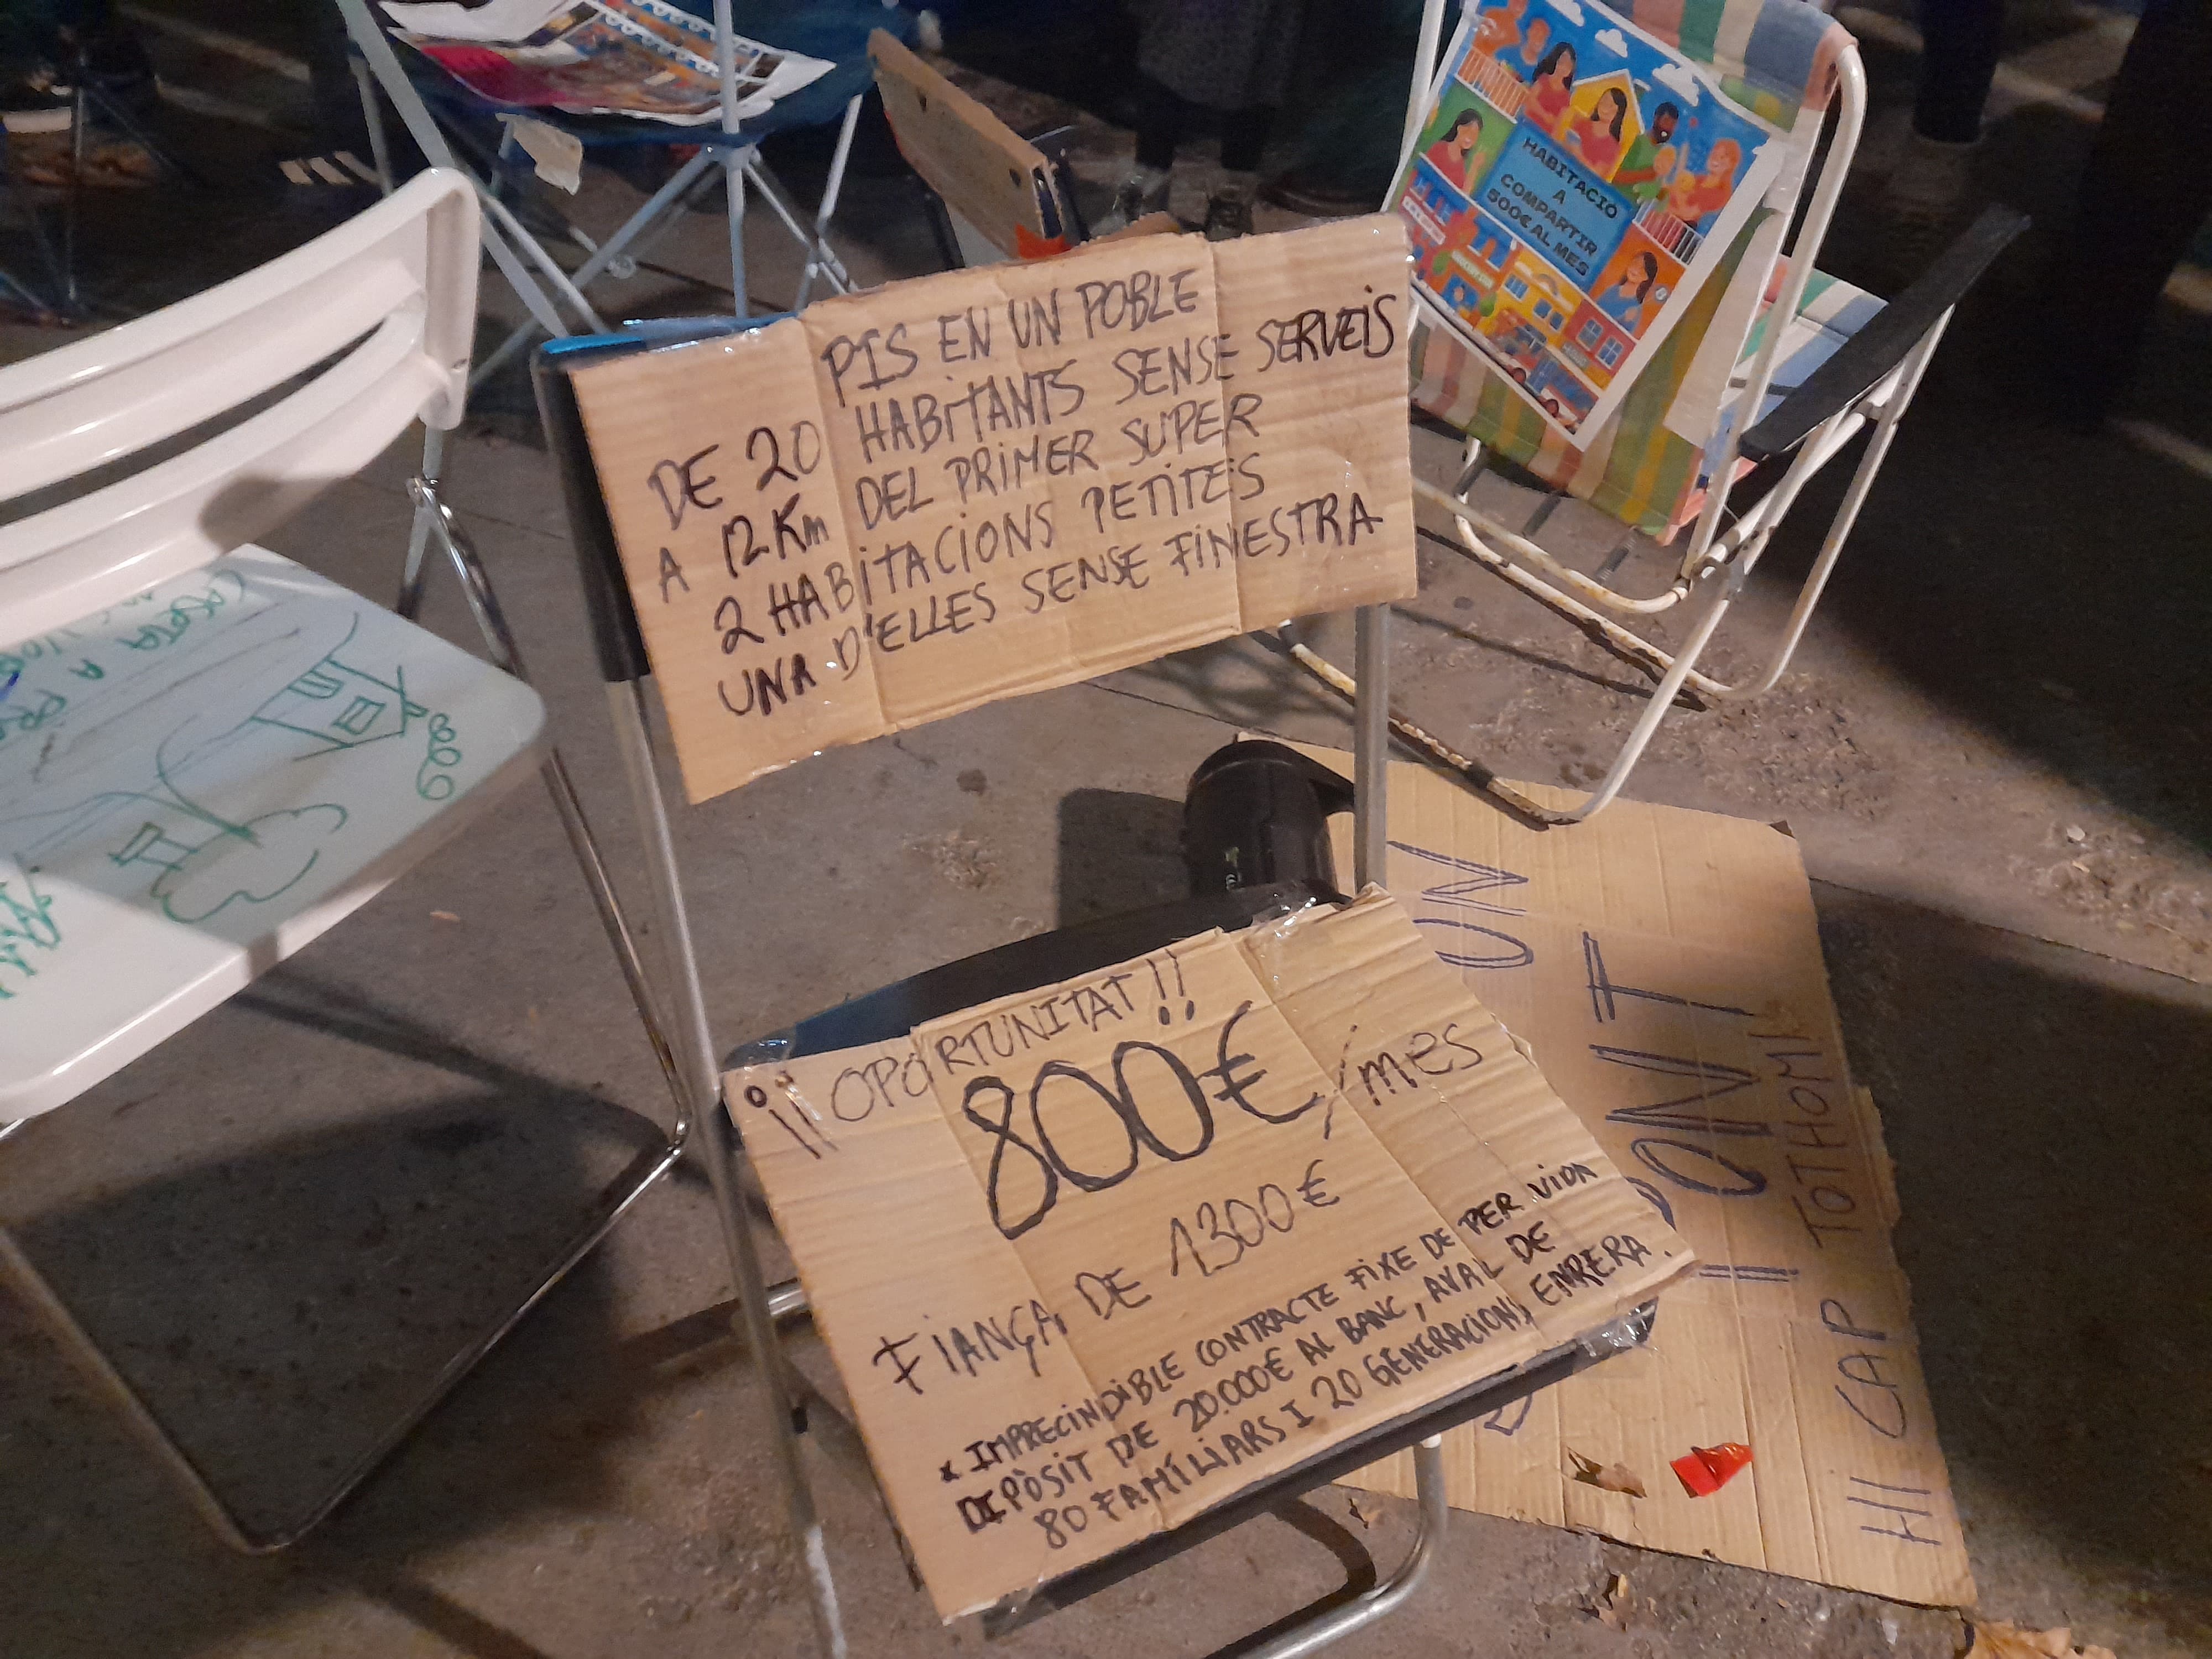 PIS EN UN POBLE
DE 20 HABITANTS SENSE SERVEIS
A 12 Km DEL PRIMER SUPER
2 HABITACIONS PETITES
UNA D'ELLES SENSE FINESTRA
¡¡ OPORTUNITAT !!
800€/mes
FIANÇA DE 1300€
* IMPRECINDIBLE CONTRACTE FIXE DE PER VIDA
DIPÒSIT DE 20.000€ AL BANC, AVAL DE
80 FAMILIARS I 20 GENERACIONS ENRERA.
HABITACIÓ
A
COMPARTIR
500€ AL MES
UN
PONT
HI CAP TOTHOM!
CASETA A